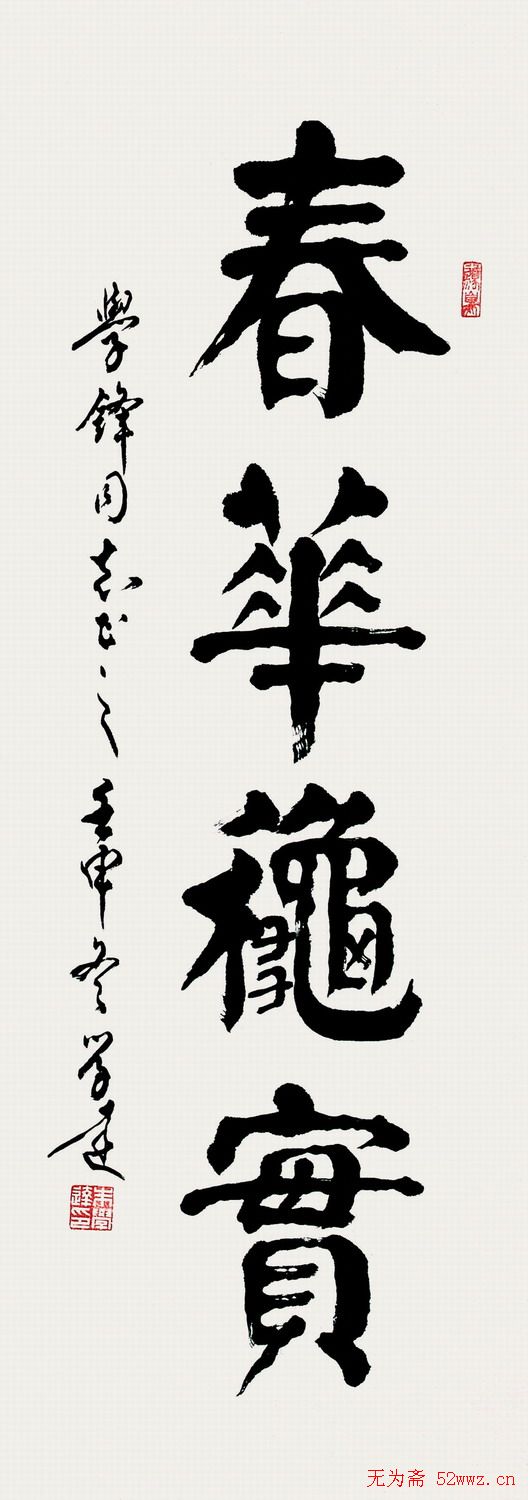 春華龝實
學鋒同志正之壬申冬學達
无为斋 52wwz.cn